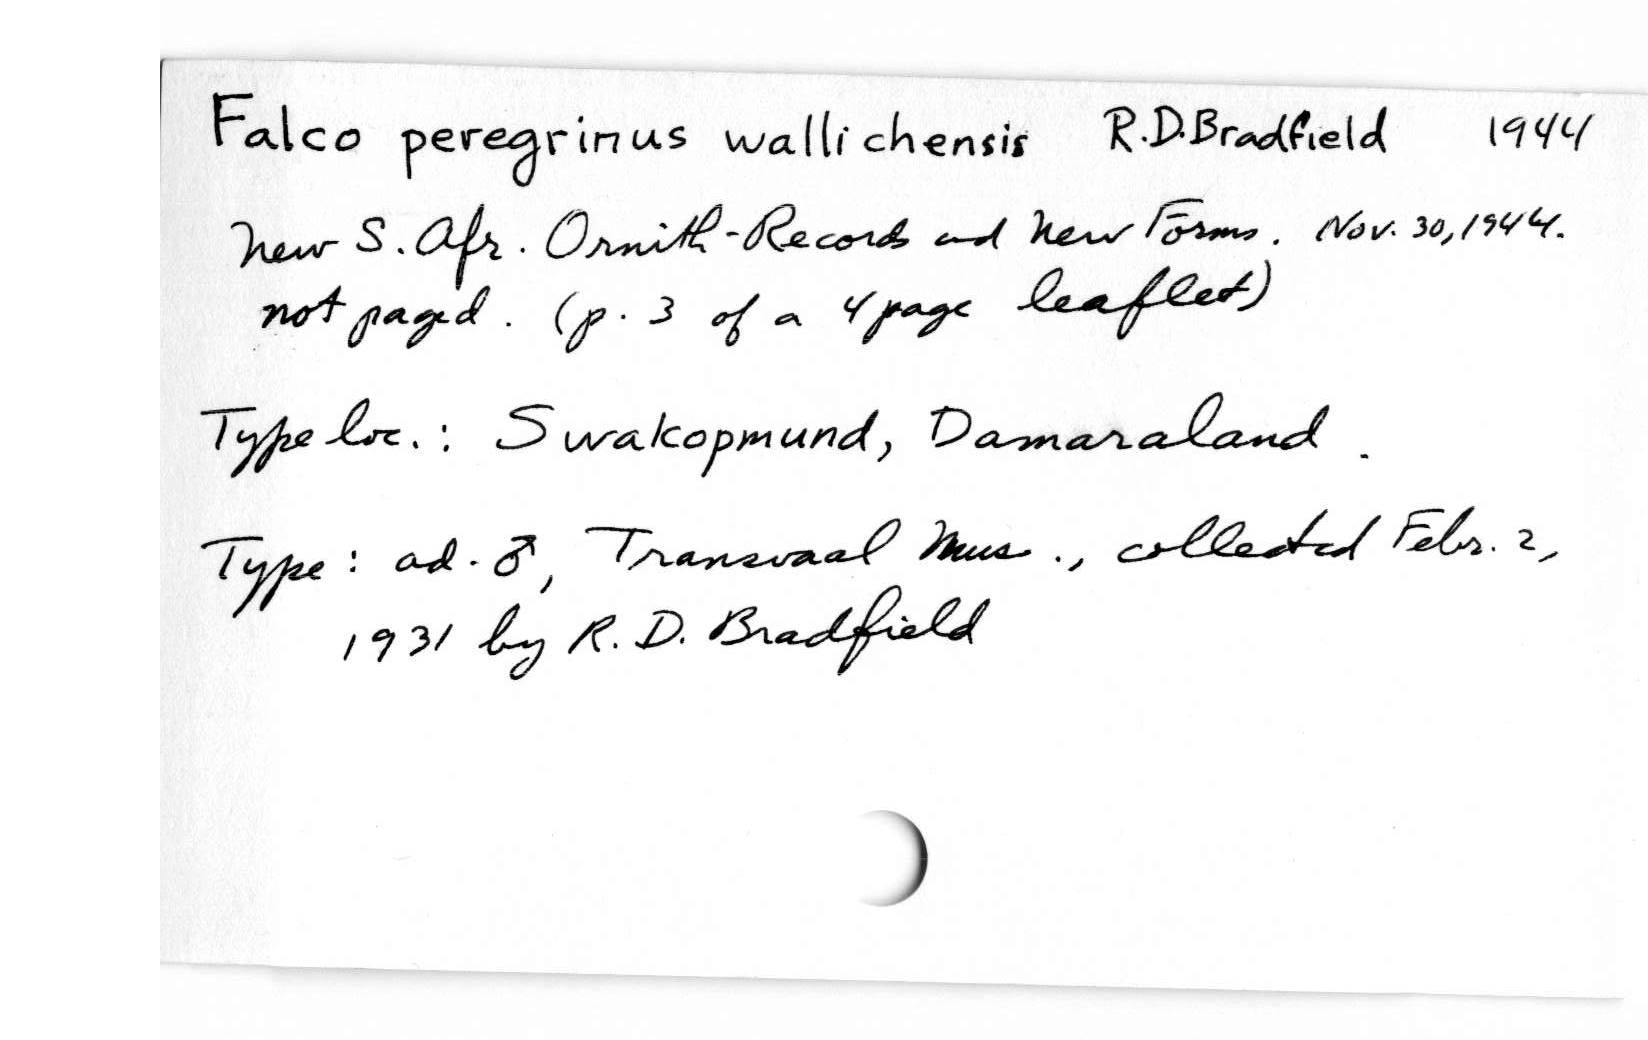 Falco peregrinus wallichensis R.D.Bradfield 1944
New S. Afr. Ornith-Records and New Forms. Nov. 30, 1944.
not paged. (p. 3 of a 4 page leaflet)
Type loc.: Swakopmund, Damaraland.
Type: ad. ♂, Transvaal Mus., collected Febr. 2,
1931 by R. D. Bradfield